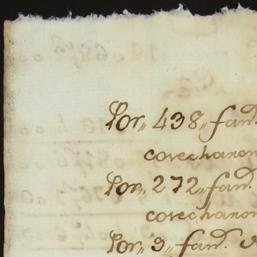 Por,, 438,, fan.
corechanon
Por,, 272,, fan.
corechanon
Por,, 9,, fan.